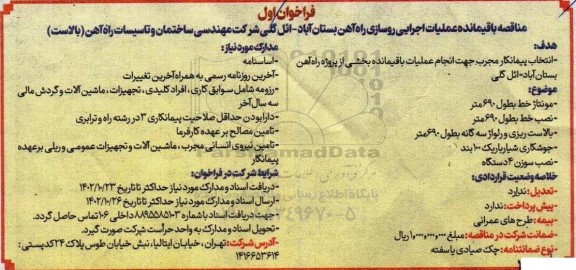 فراخوان اول
مناقصه باقیمانده عملیات اجرایی روسازی راه‌آهن بستان‌آباد - ائل گلی شرکت مهندسی ساختمان و تاسیسات راه‌آهن (بالاست)
هدف:
-انتخاب پیمانکار مجرب جهت انجام عملیات باقیمانده بخشی از پروژه راه‌آهن
بستان‌آباد- ائل گلی
موضوع:
-مونتاژ خط بطول ۶۹۰ متر
-نصب خط بطول ۶۹۰ متر
-بالاست ریزی و رلواژ سه گانه بطول ۶۹۰ متر
-جوشکاری شیارباریک ۱۰۰ بند
-نصب سوزن ۴ دستگاه
خلاصه وضعیت قراردادی:
-تعدیل: ندارد
-پیش پرداخت: ندارد
-بیمه: طرح های عمرانی
-ضمانت شرکت در مناقصه: مبلغ ۱,۰۰۰,۰۰۰,۰۰۰ ریال
-نوع ضمانتنامه: چک صیادی یا سفته
مدارک مورد نیاز:
-اساسنامه
-آخرین روزنامه رسمی به همراه آخرین تغییرات
-رزومه شامل سوابق کاری، افراد کلیدی، تجهیزات، ماشین آلات و گردش مالی
سه سال آخر
-دارا بودن حداقل صلاحیت پیمانکاری ۳ در رشته راه و ترابری
-تامین مصالح بر عهده کارفرما
-تامین نیروی انسانی مجرب، ماشین آلات و تجهیزات عمومی و ریلی بر عهده
پیمانکار
شرایط شرکت در فراخوان:
-دریافت اسناد و مدارک مورد نیاز حداکثر تا تاریخ ۱۴۰۲/۱۰/۲۳
-ارسال اسناد و مدارک مورد نیاز حداکثر تا تاریخ ۱۴۰۲/۱۰/۲۶
-جهت دریافت اسناد با شماره ۸۸۹۵۵۸۵۰۳ داخلی ۱۰۶ تماس حاصل گردد.
-تحویل اسناد و مدارک به واحد حراست شرکت صورت گیرد.
-آدرس شرکت: تهران، خیابان ایتالیا، نبش خیابان طوس پلاک ۲۴ کدپستی:
۱۴۱۶۶۵۳۶۱۴
ParsNamadData